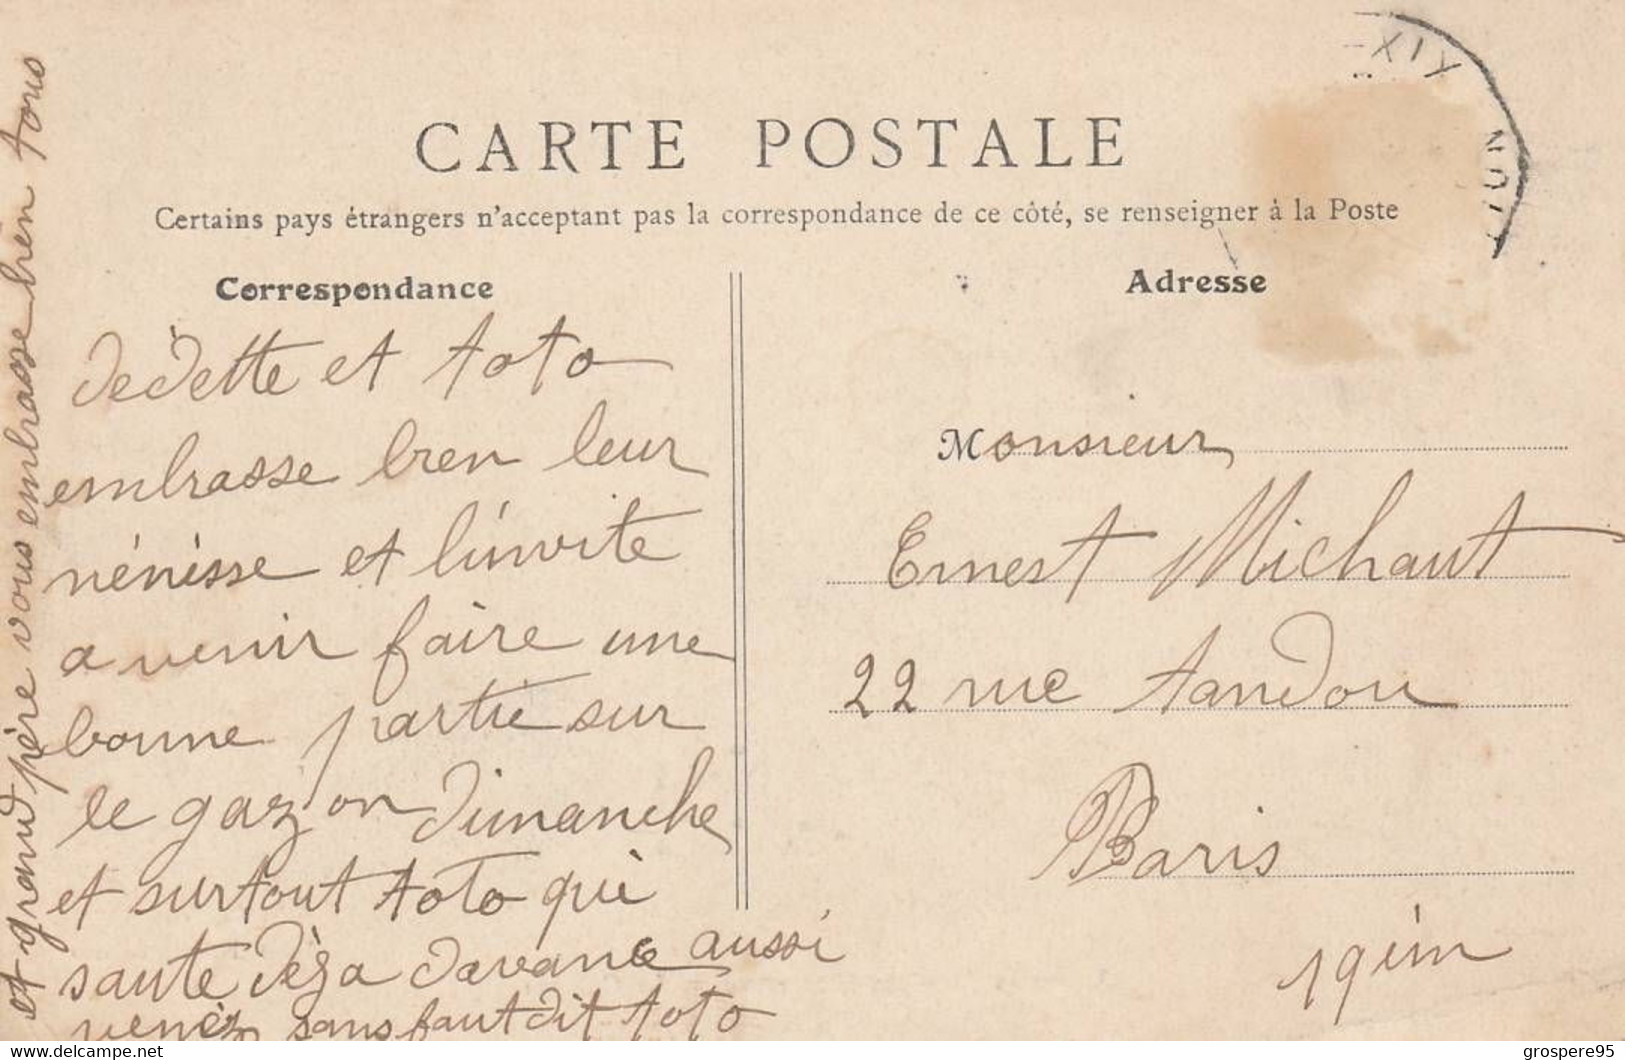 CARTE POSTALE
Certains pays étrangers n'acceptant pas la correspondance de ce côté, se renseigner à la Poste
Correspondance
Adresse
dedette et toto
embrasse bien leur
nénésse et l'invite
a venir faire une
bonne partie sur
le gazon dimanche
et surtout toto qui
saute déja davance aussi
venéz sans faut dit toto
et grand père vous embrasse bien tous
Monsieur
Ernest Michaut
22 rue Tandou
Paris
19 èm
XIX
delcampe.net
grospere95